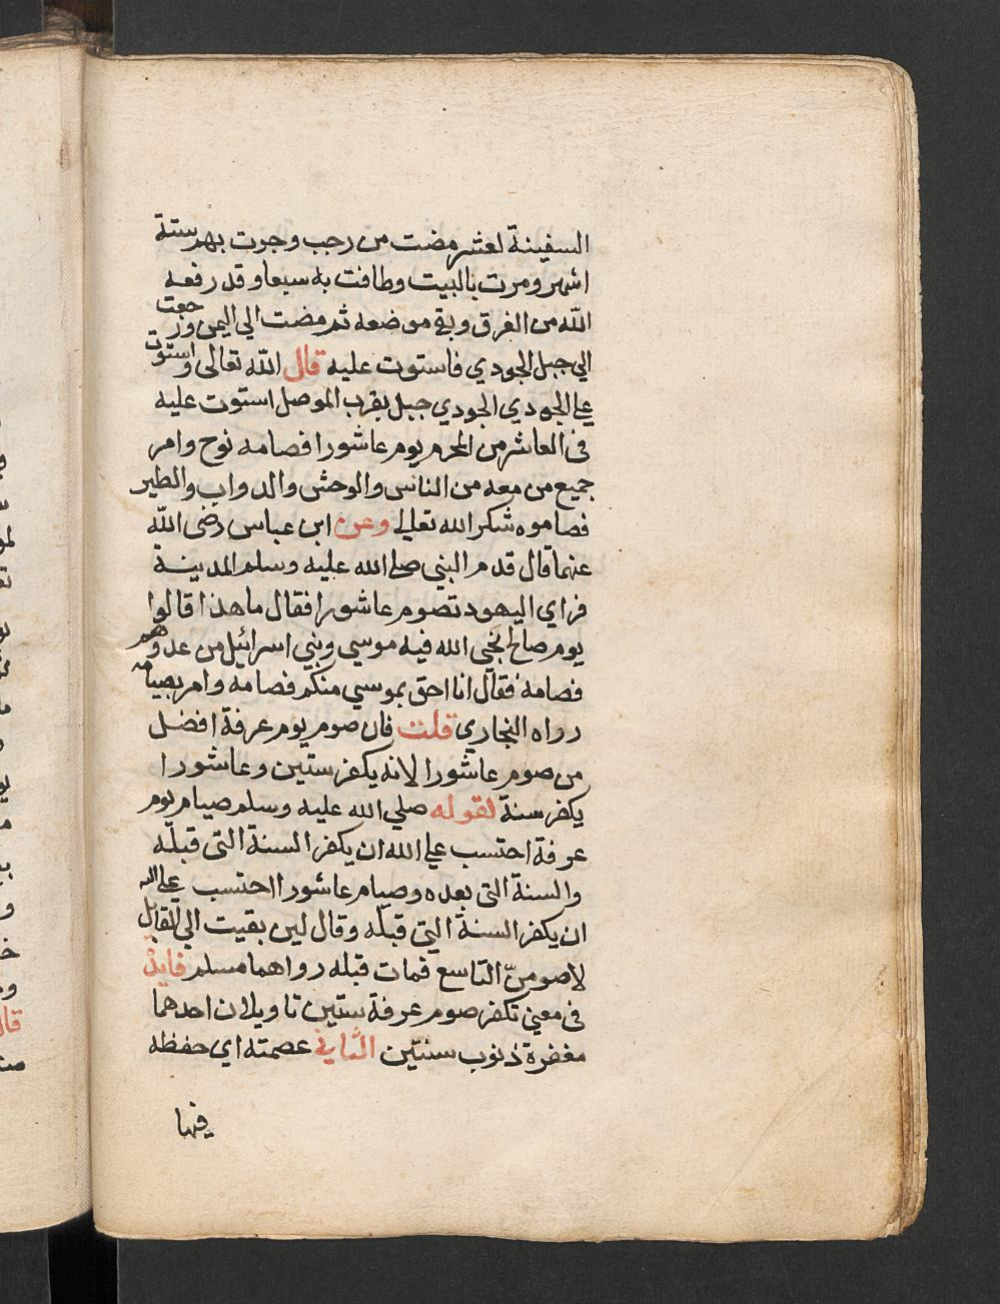 السفينة لعشر مضت من رجب وجرت بهم ستة
اشهر ومرت بالبيت وطافت به سبعا وقد رفعه
الله من الغرق وبقي موضعه ثم مضت الي اليمن ورجعت
الي جبل الجودي فاستوت عليه قال الله تعالى واستوت
علي الجودي الجودي جبل بقرب الموصل استوت عليه
فى العاشر من المحرم يوم عاشورا فصامه نوح وامر
جميع من معه من الناس والوحش والدواب والطير
فصاموه شكرا لله تعالى وعن ابن عباس رضى الله
عنهما قال قدم النبي صلى الله عليه وسلم المدينة
فراي اليهود تصوم عاشورا فقال ما هذا قالوا
يوم صالح انجي الله فيه موسي وبني اسرائيل من عدوهم
فصامه فقال انا احق بموسي منكم فصامه وامر بصيامه
رواه البخاري قلت فان صوم يوم عرفة افضل
من صوم عاشورا لانه يكفر سنتين وعاشورا
يكفر سنة لقوله صلي الله عليه وسلم صيام يوم
عرفة احتسب علي الله ان يكفر السنة التى قبله
والسنة التى بعده وصيام عاشورا احتسب علي الله
ان يكفر السنة التي قبله وقال لين بقيت الي القابل
لاصومنّ التاسع فمات قبله رواهما مسلم فايدة
فى معني تكفر صوم عرفة سنتين تاويلان احدهما
مغفرة ذنوب سنتين الثاني عصمته اي حفظه
فيها